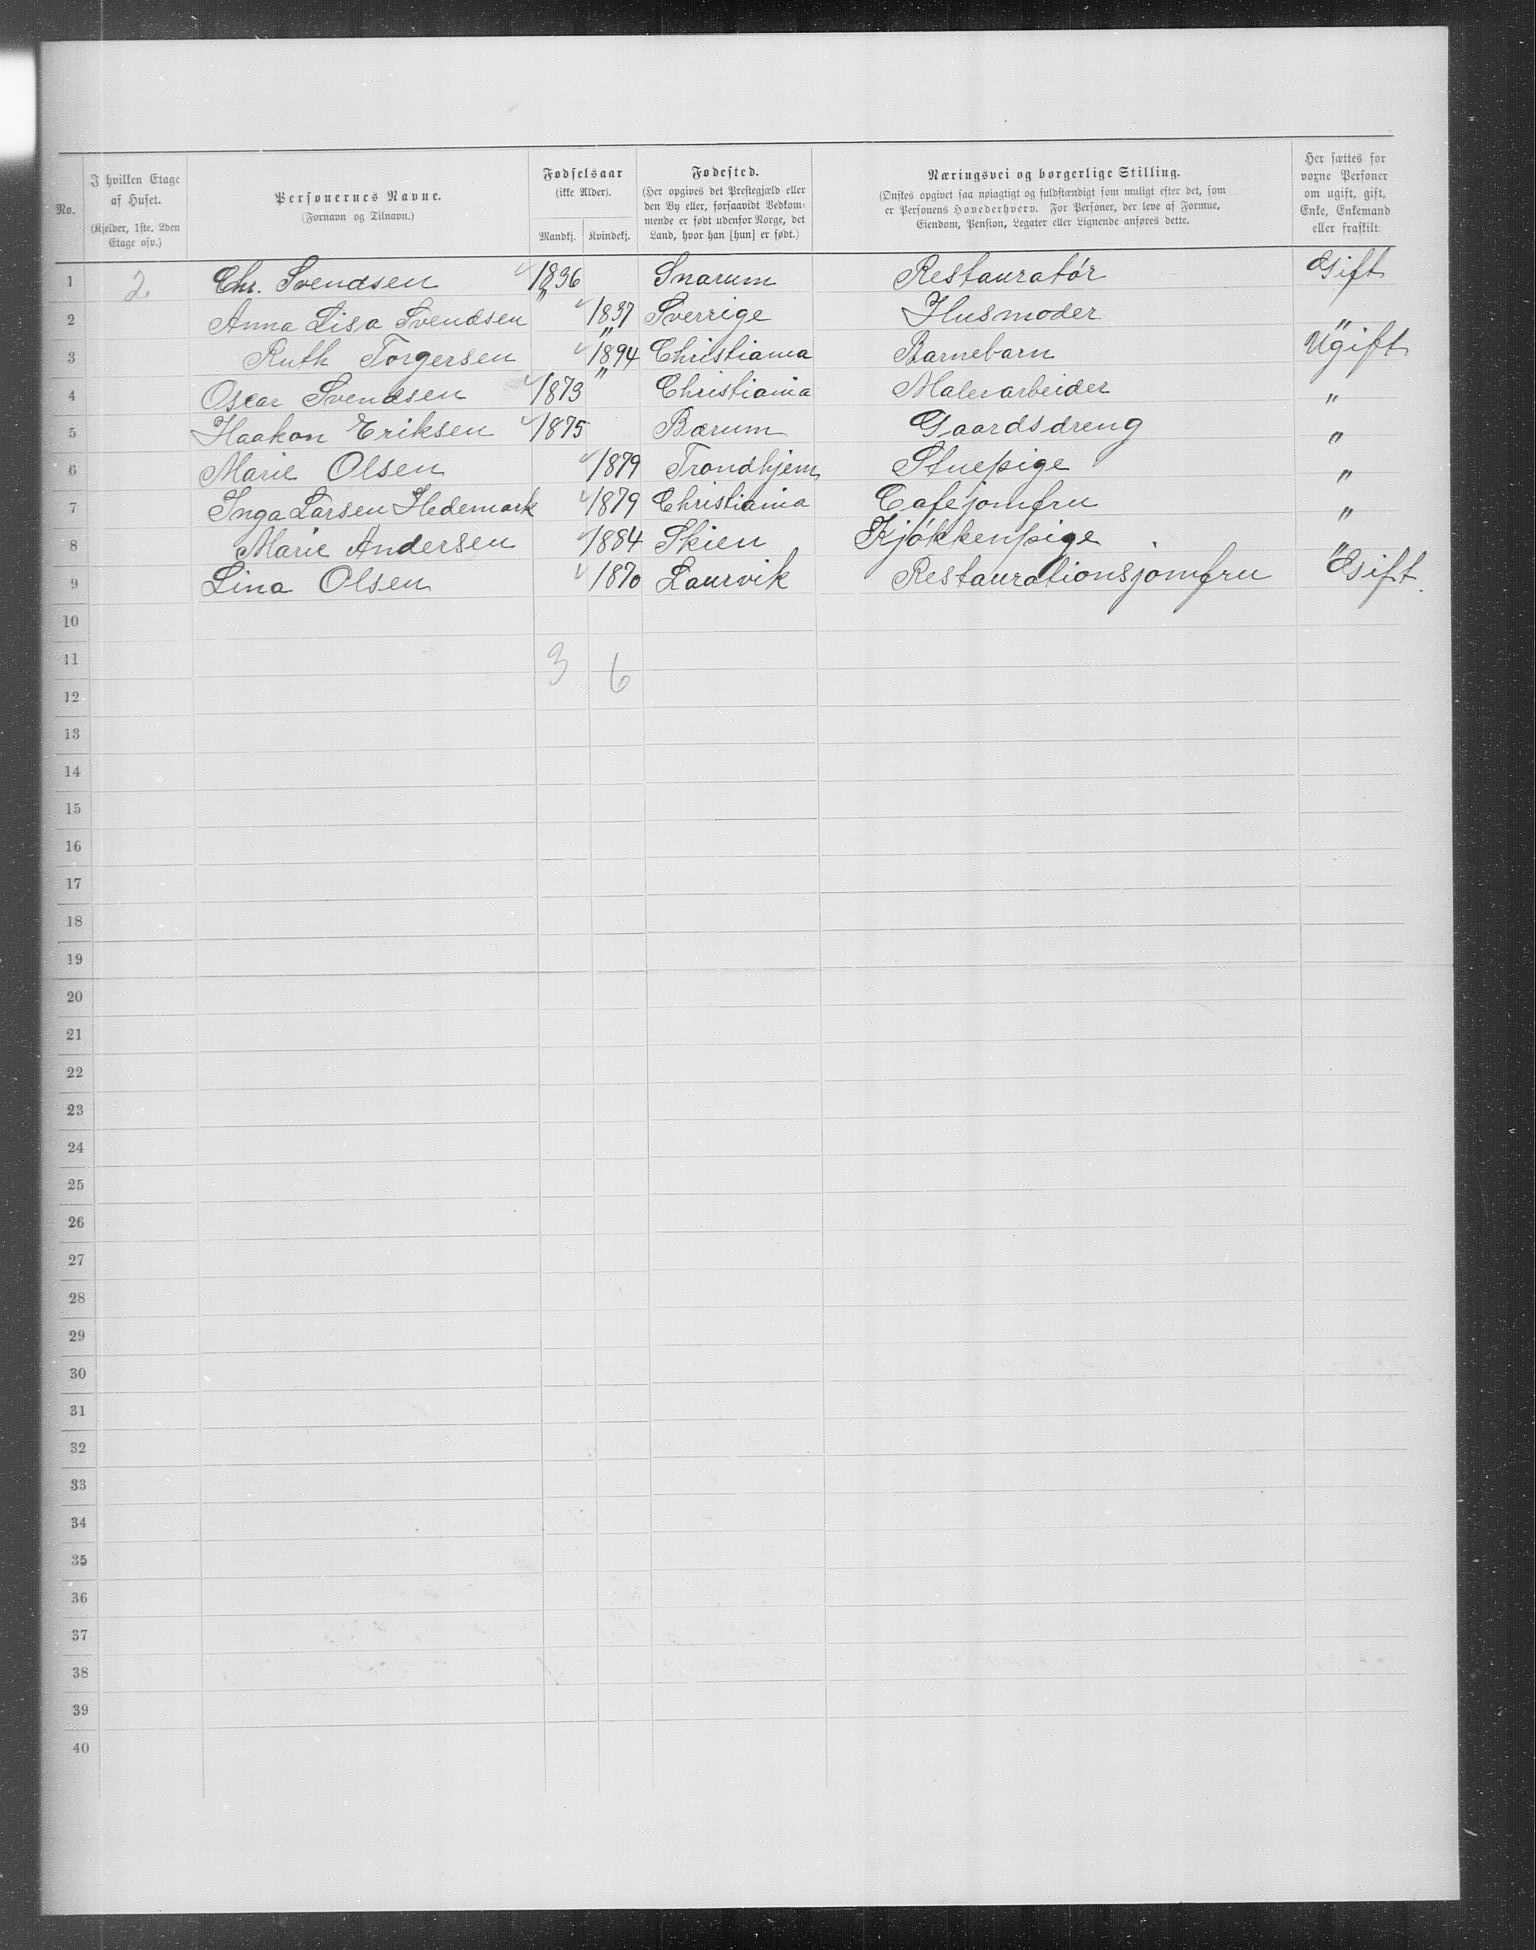 No.
I hvilken Etage af Huset.
(Kjelder, 1ste, 2den Etage osv.)
Personernes Navne.
(Fornavn og Tilnavn.)
Fødselsaar
(ikke Alder).
Mandkj. Kvindekj.
Fødested.
(Her opgives det Prestegjæld eller
den By eller, forsaavidt Vedkom-
mende er født udenfor Norge, det
Land, hvor han [hun] er født.)
Næringsvei og borgerlige Stilling.
(Ønskes opgivet saa nøiagtigt og fuldstændigt som muligt efter det, som
er Personens Hovederhverv. For Personer, der leve af Formue,
Eiendom, Pension, Legater eller Lignende anføres dette.
Her sættes for
voxne Personer
om ugift, gift,
Enke, Enkemand
eller fraskilt
1 2. Chr. Svendsen 1836 Snarum Restauratör Gift
2 Anna Lisa Svendsen 1837 Sverrige Husmoder "
3 Ruth Torgersen 1894 Christiania Barnebarn Ugift
4 Oscar Svendsen 1873 Christiania Malerarbeider "
5 Haakon Eriksen 1875 Bærum Gaardsdreng "
6 Marie Olsen 1879 Trondhjem Stuepige "
7 Inga Larsen Hedemark 1879 Christiania Cafejomfru "
8 Marie Andersen 1884 Skien Kjøkkenpige "
9 Lina Olsen 1870 Laurvik Restaurationsjomfru Gift.
10
11 3 6
12
13
14
15
16
17
18
19
20
21
22
23
24
25
26
27
28
29
30
31
32
33
34
35
36
37
38
39
40